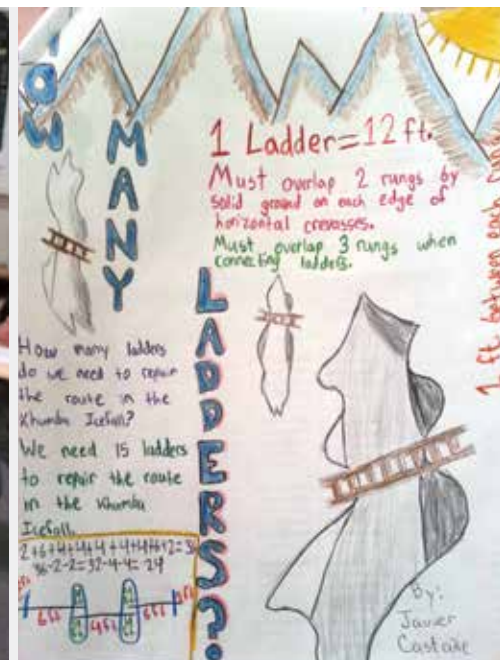 HOW
MANY
LADDERS?
1 Ladder=12 ft.
Must overlap 2 rungs by
solid ground on each edge of
horizontal crevasses.
Must overlap 3 rungs when
connecting ladders.
1 ft between each
How many ladders
do we need to repair
the route in the
Khumbu Icefall?
We need 15 ladders
to repair the route
in the Khumbu
Icefall.
2+6+4+4+4+4+4+6+2=36
36-2-2=32-4-4=24
6ft 4ft 6ft
by:
Javier